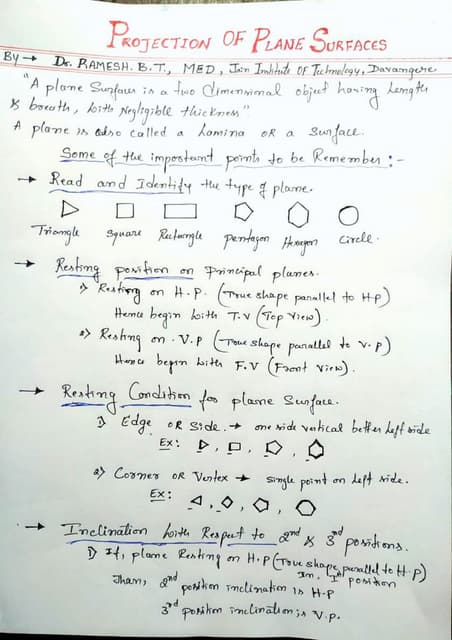 PROJECTION OF PLANE SURFACES
By → Dr. RAMESH. B.T., MED, Jain Institute OF Technology, Davangere
"A plane Surface is a two dimensional object having Length
& breath, with Negligible thickness"
A plane is also called a Lamina OR a Surface.
Some of the important points to be Remember :-
→ Read and Identify the type of plane.
Triangle Square Rectangle pentagon Hexagon Circle.
→ Resting position on principal planes.
1) Resting on H.P. (True shape parallel to H.P)
Hence begin with T.V (Top View).
2) Resting on V.P (True shape parallel to V.P)
Hence begin with F.V (Front View).
→ Resting Condition for plane Surface.
1) Edge OR Side. → one side vertical better Left side
Ex:
2) Corner OR Vertex → Single point on Left side.
Ex:
→ Inclination with Respect to 2nd & 3rd positions.
1) If, plane Resting on H.P (True shape parallel to H.P)
Im, Ist position
Than, 2nd position inclination is H.P
3rd position inclination is V.P.